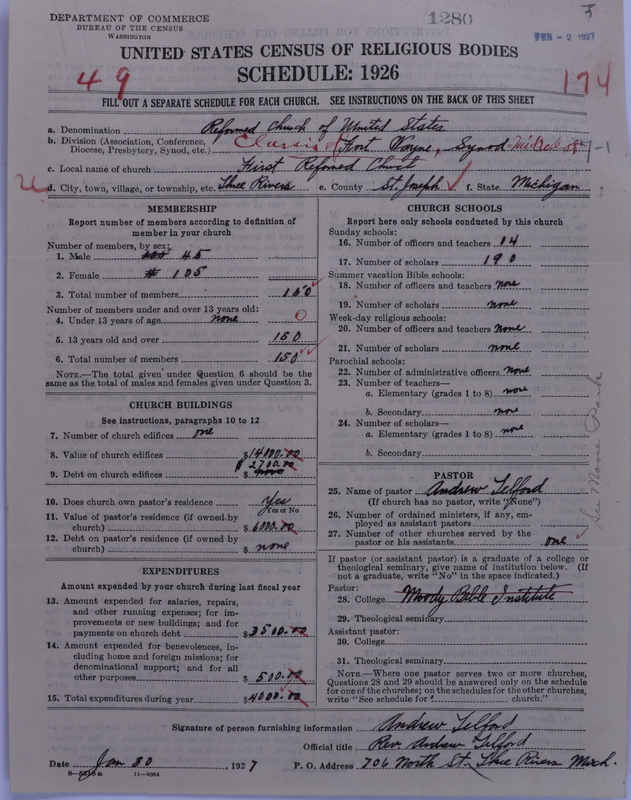 DEPARTMENT OF COMMERCE
BUREAU OF THE CENSUS
WASHINGTON
1280
FEB -2 1927
UNITED STATES CENSUS OF RELIGIOUS BODIES
SCHEDULE: 1926
49
174
FILL OUT A SEPARATE SCHEDULE FOR EACH CHURCH. SEE INSTRUCTIONS ON THE BACK OF THIS SHEET
a. Denomination Reformed Church of United States
b. Division (Association, Conference, Diocese, Presbytery, Synod, etc.) Classis of Fort Wayne, Synod
c. Local name of church First Reformed Church
d. City, town, village, or township, etc. Three Rivers e. County St. Joseph f. State Michigan
MEMBERSHIP
Report number of members according to definition of
member in your church
Number of members, by sex:
1. Male 45
2. Female 105
3. Total number of members 150
Number of members under and over 13 years old:
4. Under 13 years of age none 0
5. 13 years old and over 150
6. Total number of members 150
NOTE.—The total given under Question 6 should be
same as the total of males and females given under Question 3.
CHURCH BUILDINGS
See instructions, paragraphs 10 to 12
7. Number of church edifices one
8. Value of church edifices $14000.00
$2700.00
9. Debt on church edifices $ none
10. Does church own pastor's residence Yes
Yes or No
11. Value of pastor's residence (if owned by
church) $6000.00
12. Debt on pastor's residence (if owned by
church) $ none
EXPENDITURES
Amount expended by your church during last fiscal year
13. Amount expended for salaries, repairs,
and other running expenses; for im-
provements or new buildings; and for
payments on church debt $3500.00
14. Amount expended for benevolences, in-
cluding home and foreign missions; for
denominational support; and for all
other purposes $500.00
15. Total expenditures during year $4000.00
CHURCH SCHOOLS
Report here only schools conducted by this church
Sunday schools:
16. Number of officers and teachers 14
17. Number of scholars 190
Summer vacation Bible schools:
18. Number of officers and teachers none
19. Number of scholars none
Week-day religious schools:
20. Number of officers and teachers none
21. Number of scholars none
Parochial schools:
22. Number of administrative officers none
23. Number of teachers—
a. Elementary (grades 1 to 8) none
b. Secondary none
24. Number of scholars—
a. Elementary (grades 1 to 8) none
b. Secondary
PASTOR
25. Name of pastor Andrew Telford
(If church has no pastor, write "None")
26. Number of ordained ministers, if any, em-
ployed as assistant pastors
27. Number of other churches served by the
pastor or his assistants one
If pastor (or assistant pastor) is a graduate of a college or
theological seminary, give name of institution below. (If
not a graduate, write "No" in the space indicated.)
Pastor:
28. College Moody Bible Institute
29. Theological seminary
Assistant pastor:
30. College
31. Theological seminary
NOTE.—Where one pastor serves two or more churches,
Questions 28 and 29 should be answered only on the schedule
for one of the churches; on the schedules for the other churches,
write "See schedule for church."
Signature of person furnishing information Andrew Telford
Official title Rev. Andrew Telford
Date Jan 20, 1927 P. O. Address 706 North St. Three Rivers Mich.
11—9064